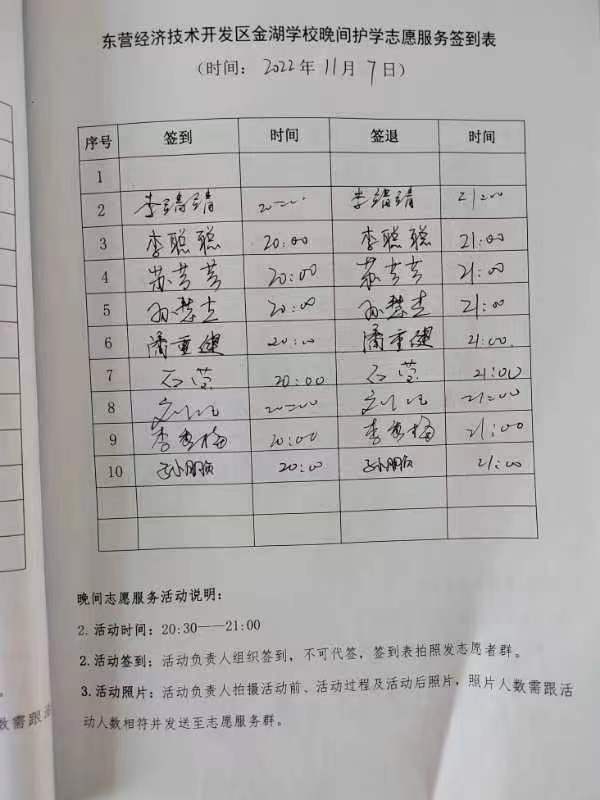 东营经济技术开发区金湖学校晚间护学志愿服务签到表
(时间: 2022年 11月 7日)
序号 签到 时间 签退 时间
1
2 李靖靖 20:00 李靖靖 21:00
3 李聪聪 20:00 李聪聪 21:00
4 苏芳芳 20:00 苏芳芳 21:00
5 20:00 21:00
6 潘重健 20:00 潘重健 21:00
7 石莹 20:00 石莹 21:00
8 20:00 21:00
9 李秀梅 20:00 李秀梅 21:00
10 孙鹏 20:00 孙鹏 21:00
晚间志愿服务活动说明:
2.活动时间: 20:30——21:00
2.活动签到: 活动负责人组织签到, 不可代签, 签到表拍照发志愿者群。
3.活动照片: 活动负责人拍摄活动前、活动过程及活动后照片, 照片人数需跟活
动人数相符并发送至志愿服务群。
数需跟活